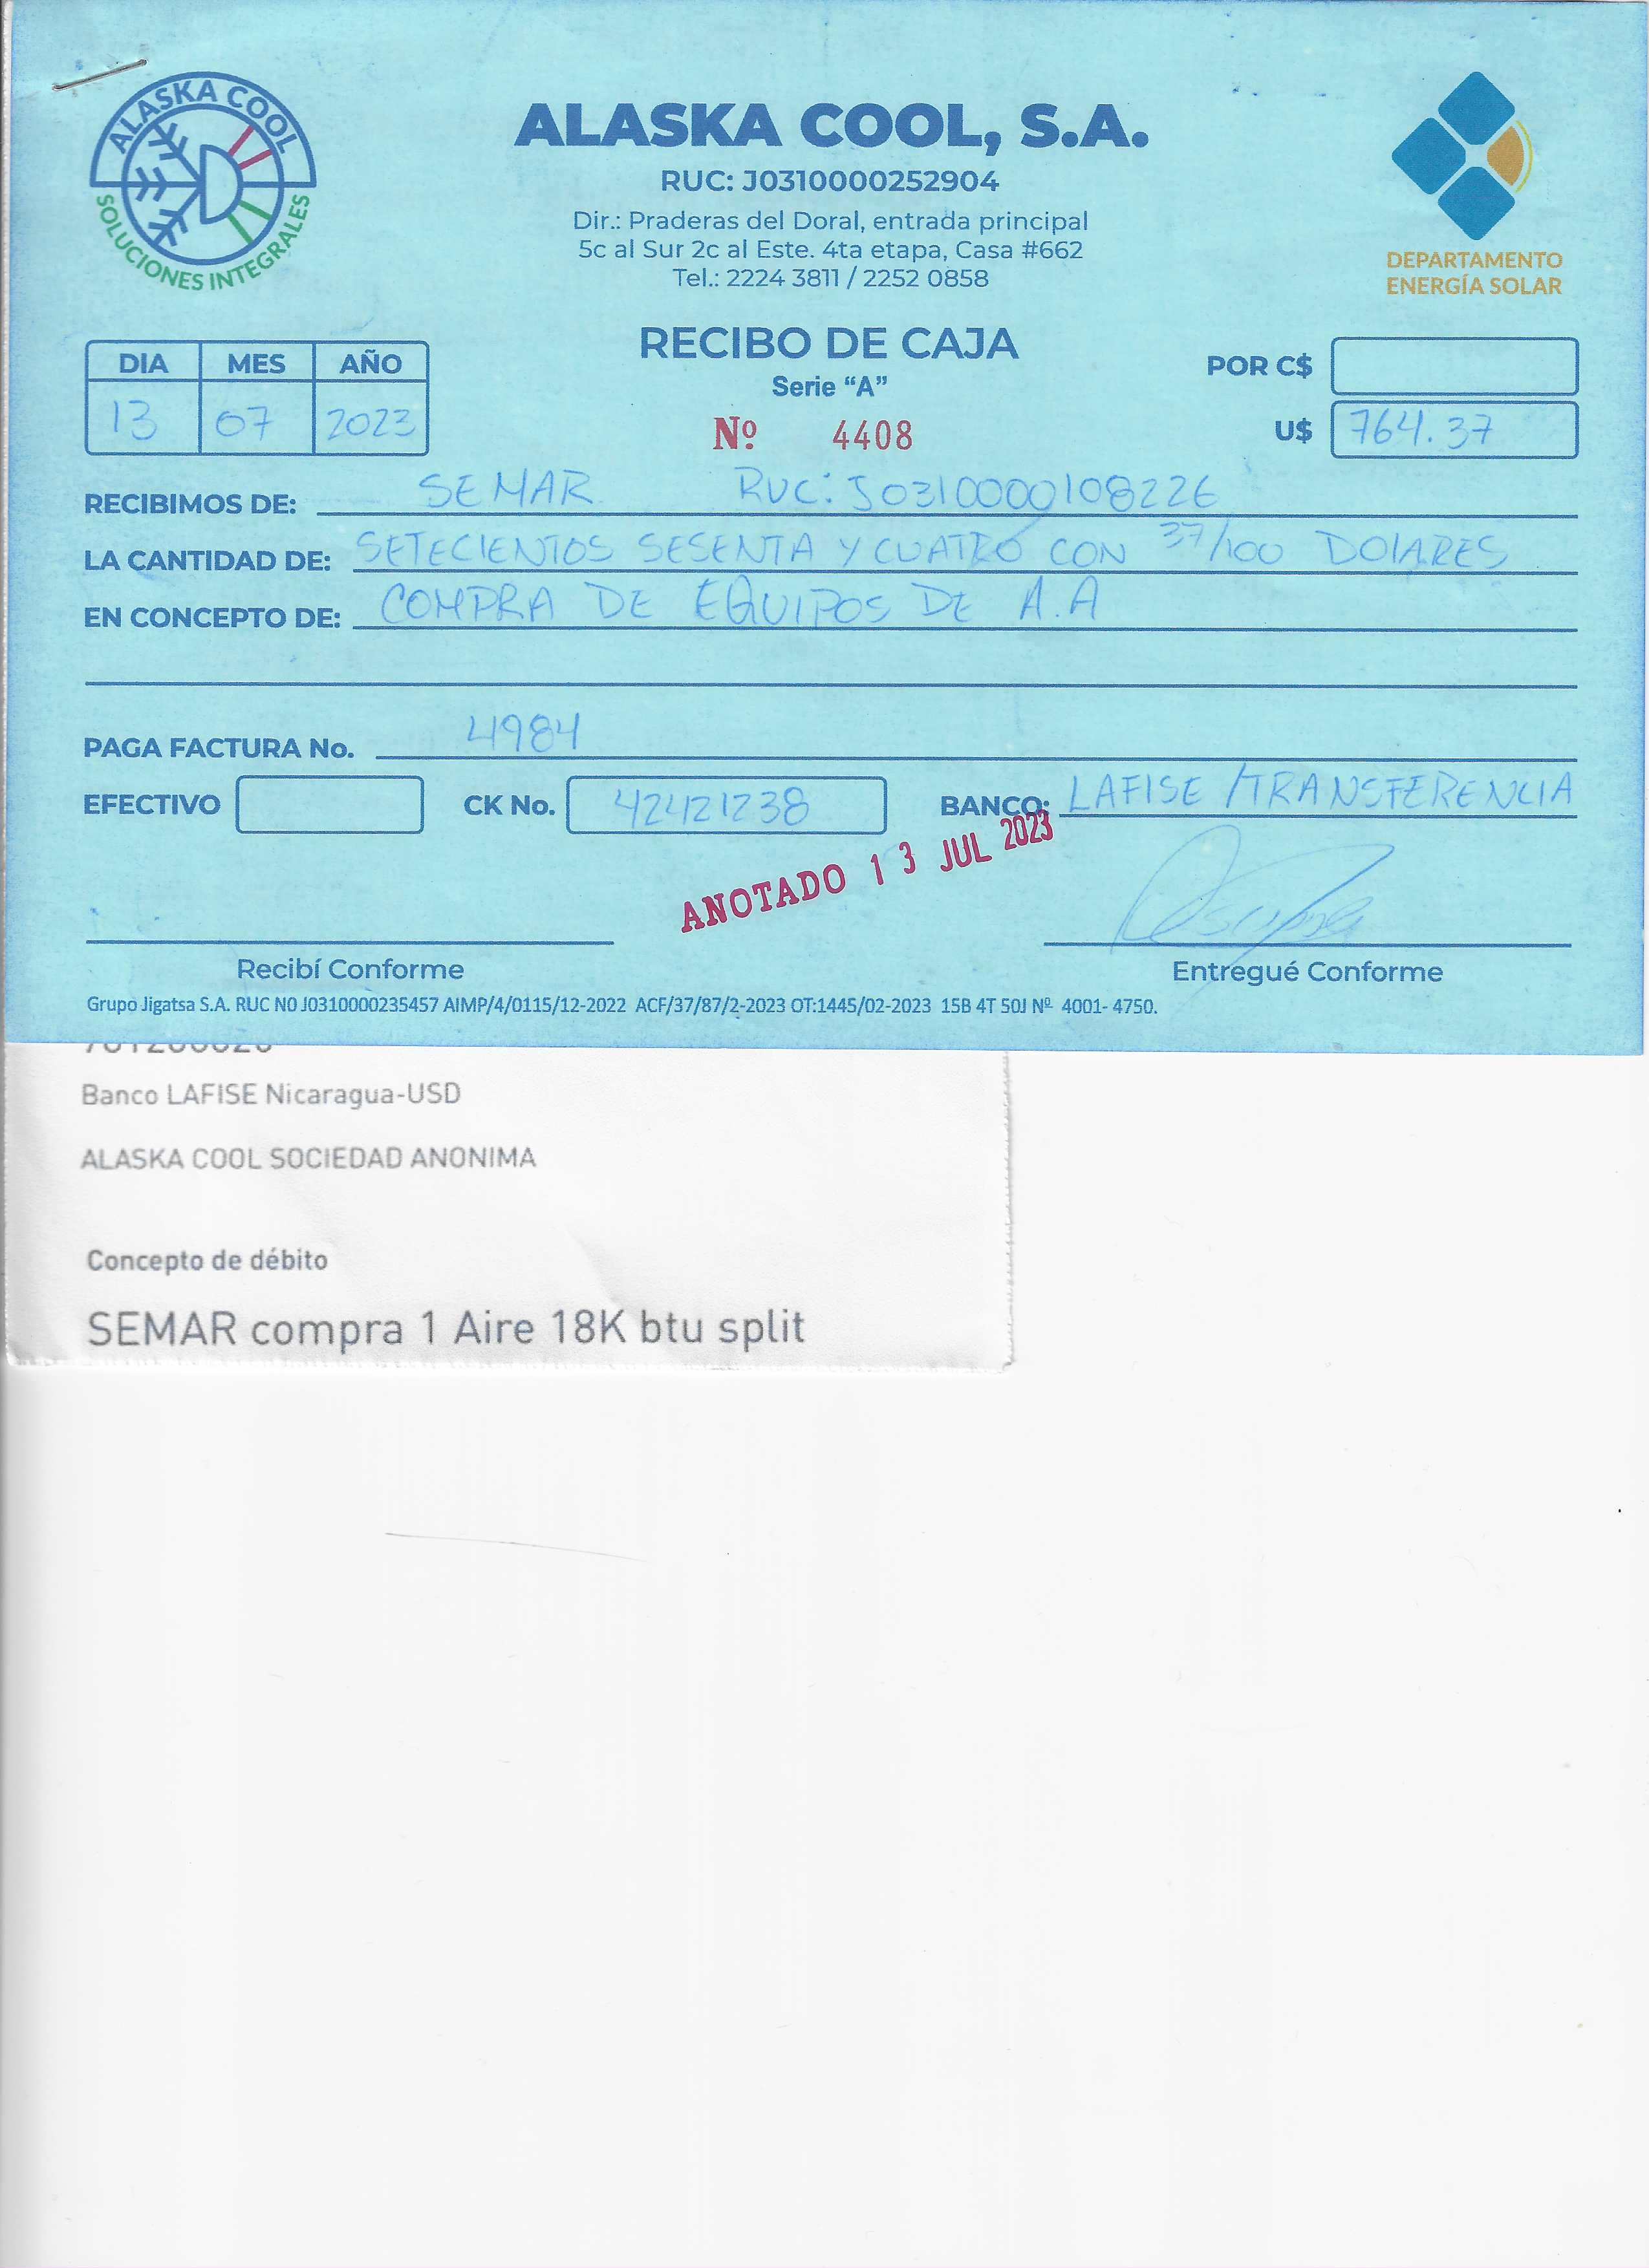 ALASKA COOL
SOLUCIONES INTEGRALES
ALASKA COOL, S.A.
RUC: J0310000252904
Dir.: Praderas del Doral, entrada principal
5c al Sur 2c al Este. 4ta etapa, Casa #662
Tel.: 2224 3811 / 2252 0858
DEPARTAMENTO
ENERGÍA SOLAR
RECIBO DE CAJA
Serie “A”
Nº 4408
DIA MES AÑO
13 07 2023
POR C$
U$ 764.37
RECIBIMOS DE: SEMAR RUC: J0310000108226
LA CANTIDAD DE: SETECIENTOS SESENTA Y CUATRO CON 37/100 DOLARES
EN CONCEPTO DE: COMPRA DE EQUIPOS DE A.A
PAGA FACTURA No. 4984
EFECTIVO CK No. 42421238 BANCO: LAFISE /TRANSFERENCIA
ANOTADO 13 JUL 2023
Recibí Conforme Entregué Conforme
Grupo Jigatsa S.A. RUC N0 J0310000235457 AIMP/4/0115/12-2022 ACF/37/87/2-2023 OT:1445/02-2023 15B 4T 50J Nº 4001- 4750.
Banco LAFISE Nicaragua-USD
ALASKA COOL SOCIEDAD ANONIMA
Concepto de débito
SEMAR compra 1 Aire 18K btu split